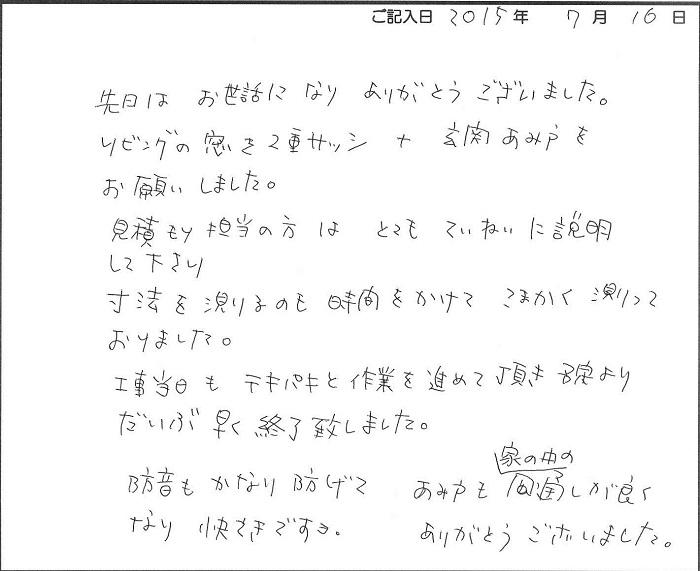 ご記入日 2015年 7月 16日
先日は お世話になり ありがとうございました。
リビングの窓を2重サッシ + 玄関あみ戸を
お願いしました。
見積もり担当の方は とても ていねいに説明
して下さり
寸法を測りるのも時間をかけて こまかく測りって
おりました。
工事当日も テキパキと作業を進めて頂き 予定より
だいぶ早く終了致しました。
防音もかなり防げて あみ戸も 家の中の風通しが良く
なり 快てきですヨ. ありがとうございました。